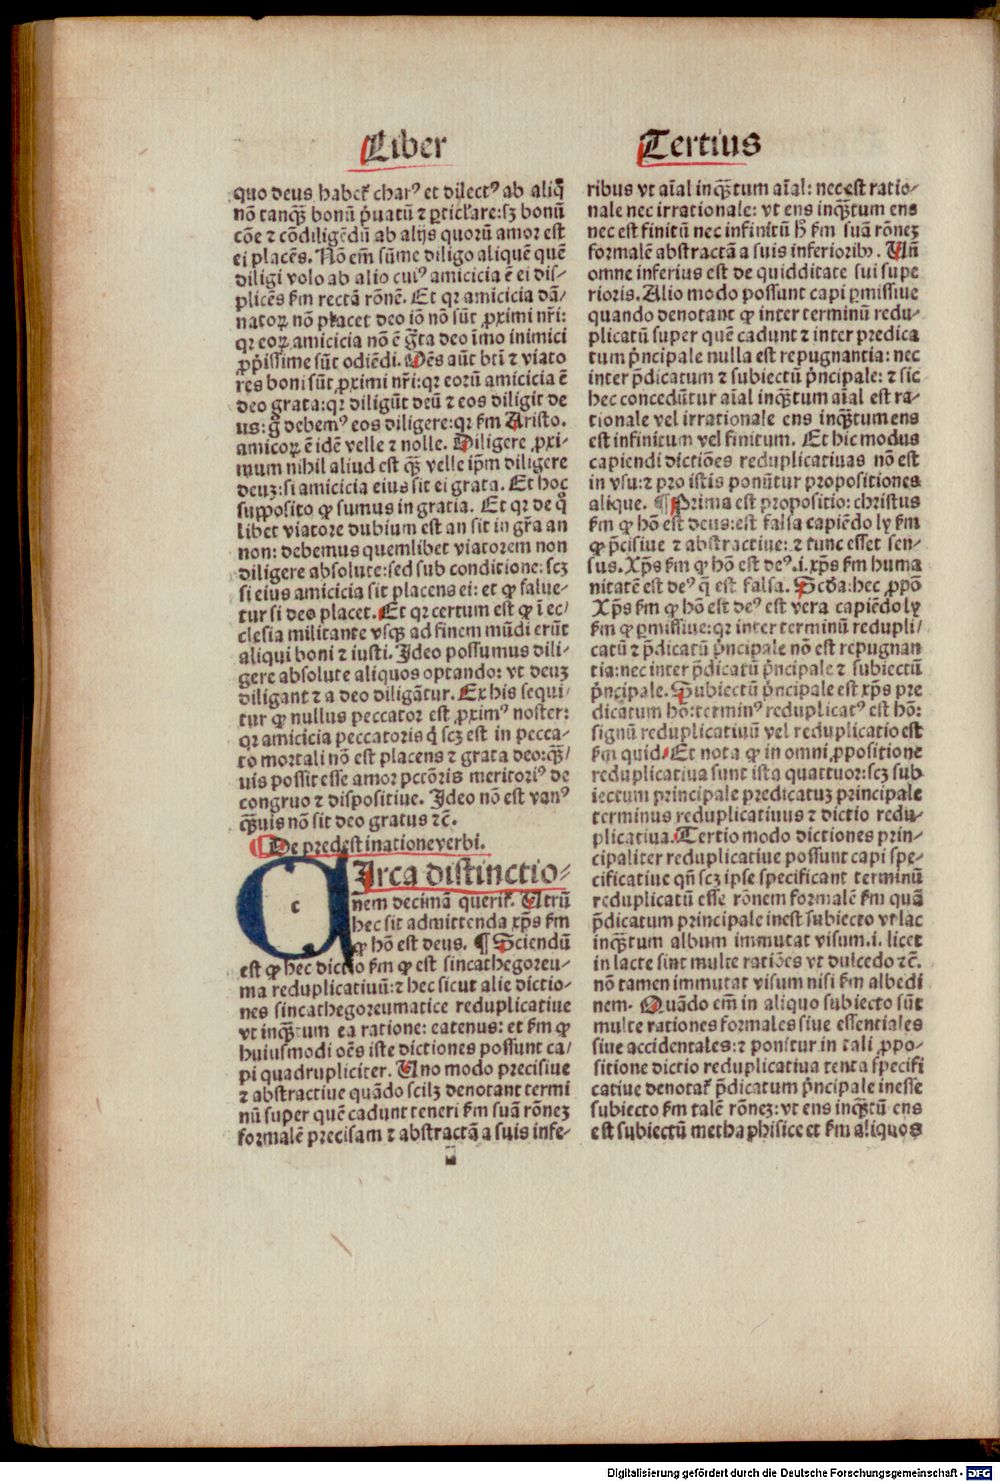 Liber
Tertius
quo deus haberꝭ charꝰ et dilectꝰ ab aliq̃
nō tanq̃ꝫ bonū p̃uatū ⁊ ꝑticlꝛare:sꝫ bonū
cōe ⁊ cōdiligēdū ab alijs quorū amor est
ei placēs. Nō em̄ sūme diligo aliquē quē
diligi volo ab alio cuiꝰ amicicia ē ei dis/
plicēs ẜm rectā rōnē. Et qꝛ amicicia dā/
natoꝝ nō placet deo iō nō sūt ꝓximi nr̄i:
qꝛ eoꝝ amicicia nō ē gr̄ta deo īmo inimici
ꝓp̄issime sūt odiēdi. Oēs aūt bt̄i ⁊ viato
res boni sūt ꝓximi nr̄i:qꝛ eorū amicicia ē
deo grata:qꝛ diligūt deū ⁊ eos diligit de
us:g̊ debemꝰ eos diligere:qꝛ ẜm Aristo.
amicoꝝ ē idē velle ⁊ nolle. Diligere ꝓxi-
mum nihil aliud est q̃ꝫ velle ip̄m diligere
deuꝫ:si amicicia eius sit ei grata. Et hoc
supposito ꝙ sumus in gratia. Et qꝛ de q̊
libet viatore dubium est an sit in gr̄a an
non: debemus quemlibet viatorem non
diligere absolute:sed sub conditione:scꝫ
si eius amicicia sit placens ei: et ꝙ salue-
tur si deo placet. Et qꝛ certum est ꝙ ī ec/
clesia militante vsqꝫ ad finem mūdi erūt
aliqui boni ⁊ iusti. Ideo possumus dili-
gere absolute aliquos optando: vt deuꝫ
diligant ⁊ a deo diligātur. Ex his sequi/
tur ꝙ nullus peccator est ꝓximꝰ noster:
qꝛ amicicia peccatoris q̄ scꝫ est in pecca-
to mortali nō est placens ⁊ grata deo:q̃ꝫ/
uis possit esse amor pctōris meritoriꝰ de
congruo ⁊ dispositiue. Ideo nō est vanꝰ
q̃ꝫuis nō sit deo gratus ⁊c̄.
¶ De predestinatione verbi.
c
Irca distinctio-
nem decimā querit̃. Utrū
hec sit admittenda xp̄s ẜm
ꝙ hō est deus. ¶ Sciendū
est ꝙ hec dictio ẜm ꝙ est sincathegoreu-
ma reduplicatiuū:⁊ hec sicut alie dictio-
nes sincathegoreumatice reduplicatiue
vt inq̃ꝫtum ea ratione: eatenus: et ẜm ꝙ
huiusmodi oēs iste dictiones possunt ca/
pi quadrupliciter. Uno modo precisiue
⁊ abstractiue quādo scilꝫ denotant termi
nū super quē cadunt teneri ẜm suā rōneꝫ
formalē precisam ⁊ abstractā a suis infe-
ribus vt aīal inq̃ꝫtum aīal: nec est ratio-
nale nec irrationale: vt ens inq̃ꝫtum ens
nec est finitū nec infinitū hꝰ ẜm suā rōneꝫ
formalē abstractā a suis inferioribꝰ. Un̄
omne inferius est de quidditate sui supe
rioris. Alio modo possunt capi ꝑmissiue
quando denotant ꝙ inter terminū redu-
plicatū super quē cadunt ⁊ inter predica
tum p̃ncipale nulla est repugnantia: nec
inter p̄dicatum ⁊ subiectū p̃ncipale: ⁊ sic
hec conceduntur aīal inq̃ꝫtum aīal est ra-
tionale vel irrationale ens inq̃ꝫtum ens
est infinitum vel finitum. Et hic modus
capiendi dictiōes reduplicatiuas nō est
in vsu:⁊ pro istis ponūtur propositiones
alique. ¶ Prima est propositio: christus
ẜm ꝙ hō est deus:est falsa capiēdo ly ẜm
ꝙ p̄cisiue ⁊ abstractiue: ⁊ tunc esset sen-
sus. Xp̄s ẜm ꝙ hō est deꝰ .i. xp̄s ẜm huma
nitatē est deꝰ q̄ est falsa. Scd̄a:hec ꝓpō
Xp̄s ẜm ꝙ hō est deꝰ est vera capiēdo ly
ẜm ꝙ ꝑmissiue:qꝛ inter terminū redupli/
catū ⁊ p̄dicatū p̃ncipale nō est repugnan
tia:nec inter p̄dicatū p̃ncipale ⁊ subiectū
p̃ncipale. Subiectū p̃ncipale est xp̄s pre
dicatum hō:terminꝰ reduplicatꝰ est hō:
signū reduplicatiuū vel reduplicatio est
ẜm quid. Et nota ꝙ in omni ꝓpositione
reduplicatiua sunt ista quattuor:scꝫ sub
iectum principale predicatuꝫ principale
terminus reduplicatiuus ⁊ dictio redu-
plicatiua. Tertio modo dictiones prin-
cipaliter reduplicatiue possunt capi spe-
cificatiue qn̄ scꝫ ipse specificant terminū
reduplicatū esse rōnem formalē ẜm quā
p̄dicatum principale inest subiecto vt lac
inq̃ꝫtum album immutat visum.i. licet
in lacte sint multe ratiōes vt dulcedo ⁊c̄.
nō tamen immutat visum nisi ẜm albedi
nem. Quādo em̄ in aliquo subiecto sūt
multe rationes formales siue essentiales
siue accidentales:⁊ ponitur in tali ꝓpo-
sitione dictio reduplicatiua tenta specifi
catiue denotat̃ p̄dicatum p̃ncipale inesse
subiecto ẜm talē rōneꝫ:vt ens inq̃ꝫtū ens
est subiectū methaphisice et ẜm aliquos
Digitalisierung gefördert durch die Deutsche Forschungsgemeinschaft - DFG